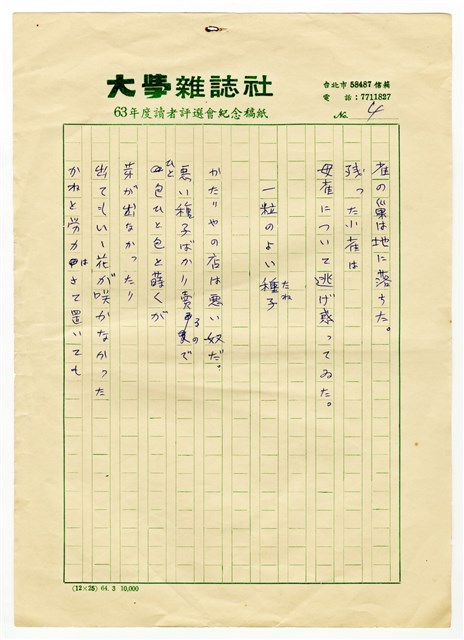 大學雜誌社
台北市 58487 信箱
電 話：7711827
63年度讀者評選會紀念稿紙
No. 4
雀の巣は地に落ちた。
残った小雀は
母雀について逃げ惑ってゐた。
一粒のよい種子
たね
かたりやの店は悪い奴だ。
悪い種子ばかり賣るので
ひと包ひと包と蒔くが
芽が出なかったり
出てもいゝ花が咲かなかった
かねと労力はさて置いても
(12×25) 64. 3 10,000